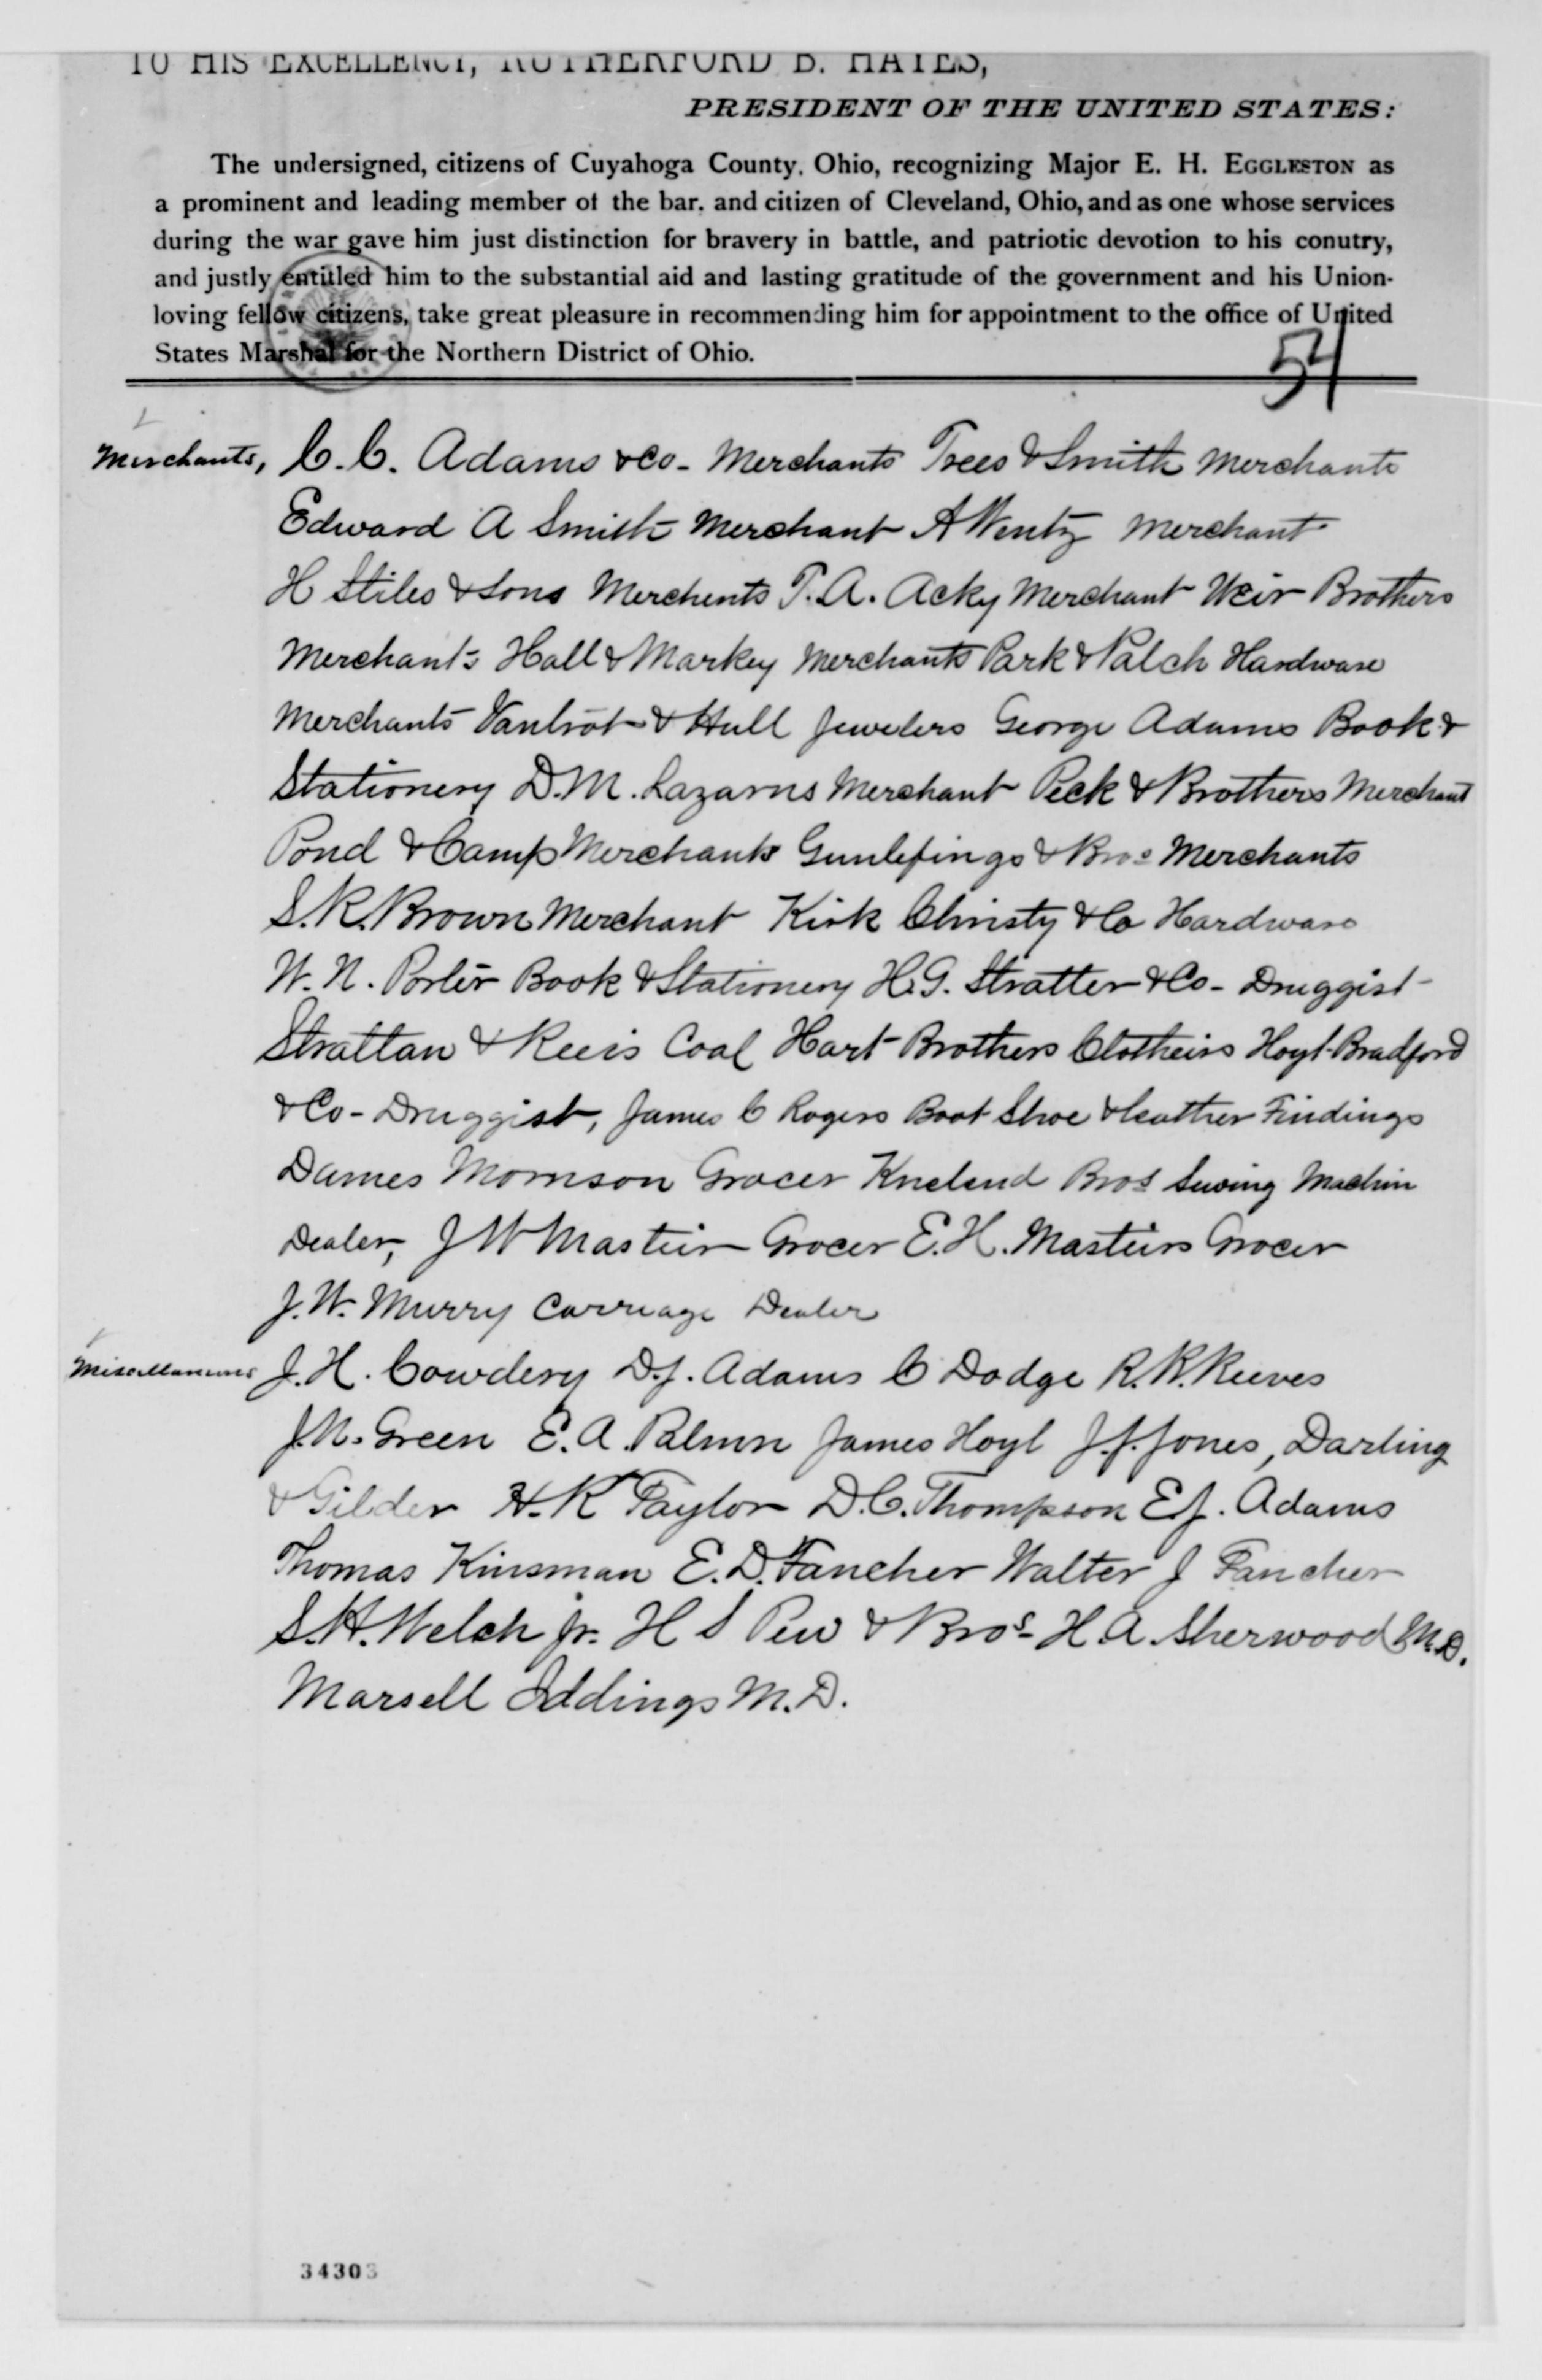 TO HIS EXCELLENCY, RUTHERFORD B. HAYES,
PRESIDENT OF THE UNITED STATES:
The undersigned, citizens of Cuyahoga County, Ohio, recognizing Major E. H. EGGLESTON as
a prominent and leading member of the bar, and citizen of Cleveland, Ohio, and as one whose services
during the war gave him just distinction for bravery in battle, and patriotic devotion to his conutry,
and justly entitled him to the substantial aid and lasting gratitude of the government and his Union-
loving fellow citizens, take great pleasure in recommending him for appointment to the office of United
States Marshal for the Northern District of Ohio.
54
Merchants, C. C. Adams & Co- Merchants Trees & Smith Merchants
Edward A Smith Merchant A Wentz Merchant
H Stiles & Sons Merchents T. A. Acky Merchant Weir Brothers
Merchants Hall & Markey Merchants Park & Palch Hardware
Merchants & Hull Jewelers George Adams Book &
Stationery D. M. Lazarus Merchant Peck & Brothers Merchant
Pond & Camp Merchants & Bros Merchants
S. R. Brown Merchant Kirk Christy & Co Hardware
W. N. Porter Book & Stationery H. G. Stratter & Co- Druggist
Strattan & Reeis Coal Hart Brothers Clotheirs Hoyt Bradford
& Co- Druggist, James C Rogers Boot Shoe & Leather Findings
Dames Morrison Grocer Kneland Bros Sewing Machin
Dealer, J W Masteir Grocer E. H. Masteirs Grocer
J. W. Murry Carriage Dealer
Miscellaneous J. H. Cowdery D. J. Adams C Dodge R. R. Reeves
J. N. Green E. A. Palmer James Hoyl J. J. Jones, Darling
& Gilder H. R Taylor D. C. Thompson E J. Adams
Thomas Kinsman E. D. Fancher Walter J Fancher
S. H. Welch Jr. H S Pew & Bros- H. A. Sherwood M.D.
Marsell Iddings M. D.
34303